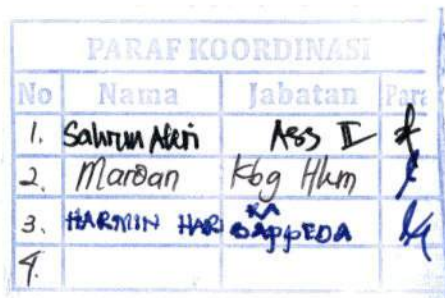 PARAF KOORDINASI
No Nama Jabatan Para
1. Sahrun Ass II
2. Maroan Kbg Hkm
3. HARMIN HARI KA BAPPEDA
4.